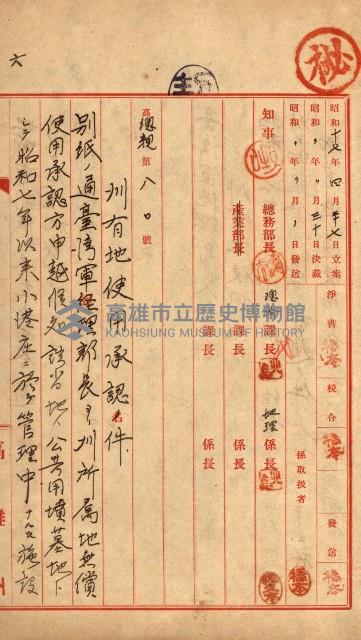 秘
六
昭和十七年四月廿七日立案
昭和〃年〃月三十日決裁
昭和 年 月 日發送
淨書 橋本
校合 橋本
發送 橋本
知事
總務部長
產業部長
總務課長
課長
課長
地理係長
係長
係長
係取扱者
橋本
高總親第八〇號
州有地使用承認ノ件
別紙ノ通臺灣軍經理部長ヨリ州所屬地無償
使用承認方申越候處該當地ハ公共用墳墓地トシテ
昭和七年以來小港庄ニ於テ管理中ナルモ施設
高雄市立歷史博物館
KAOHSIUNG MUSEUM OF HISTORY
高雄州